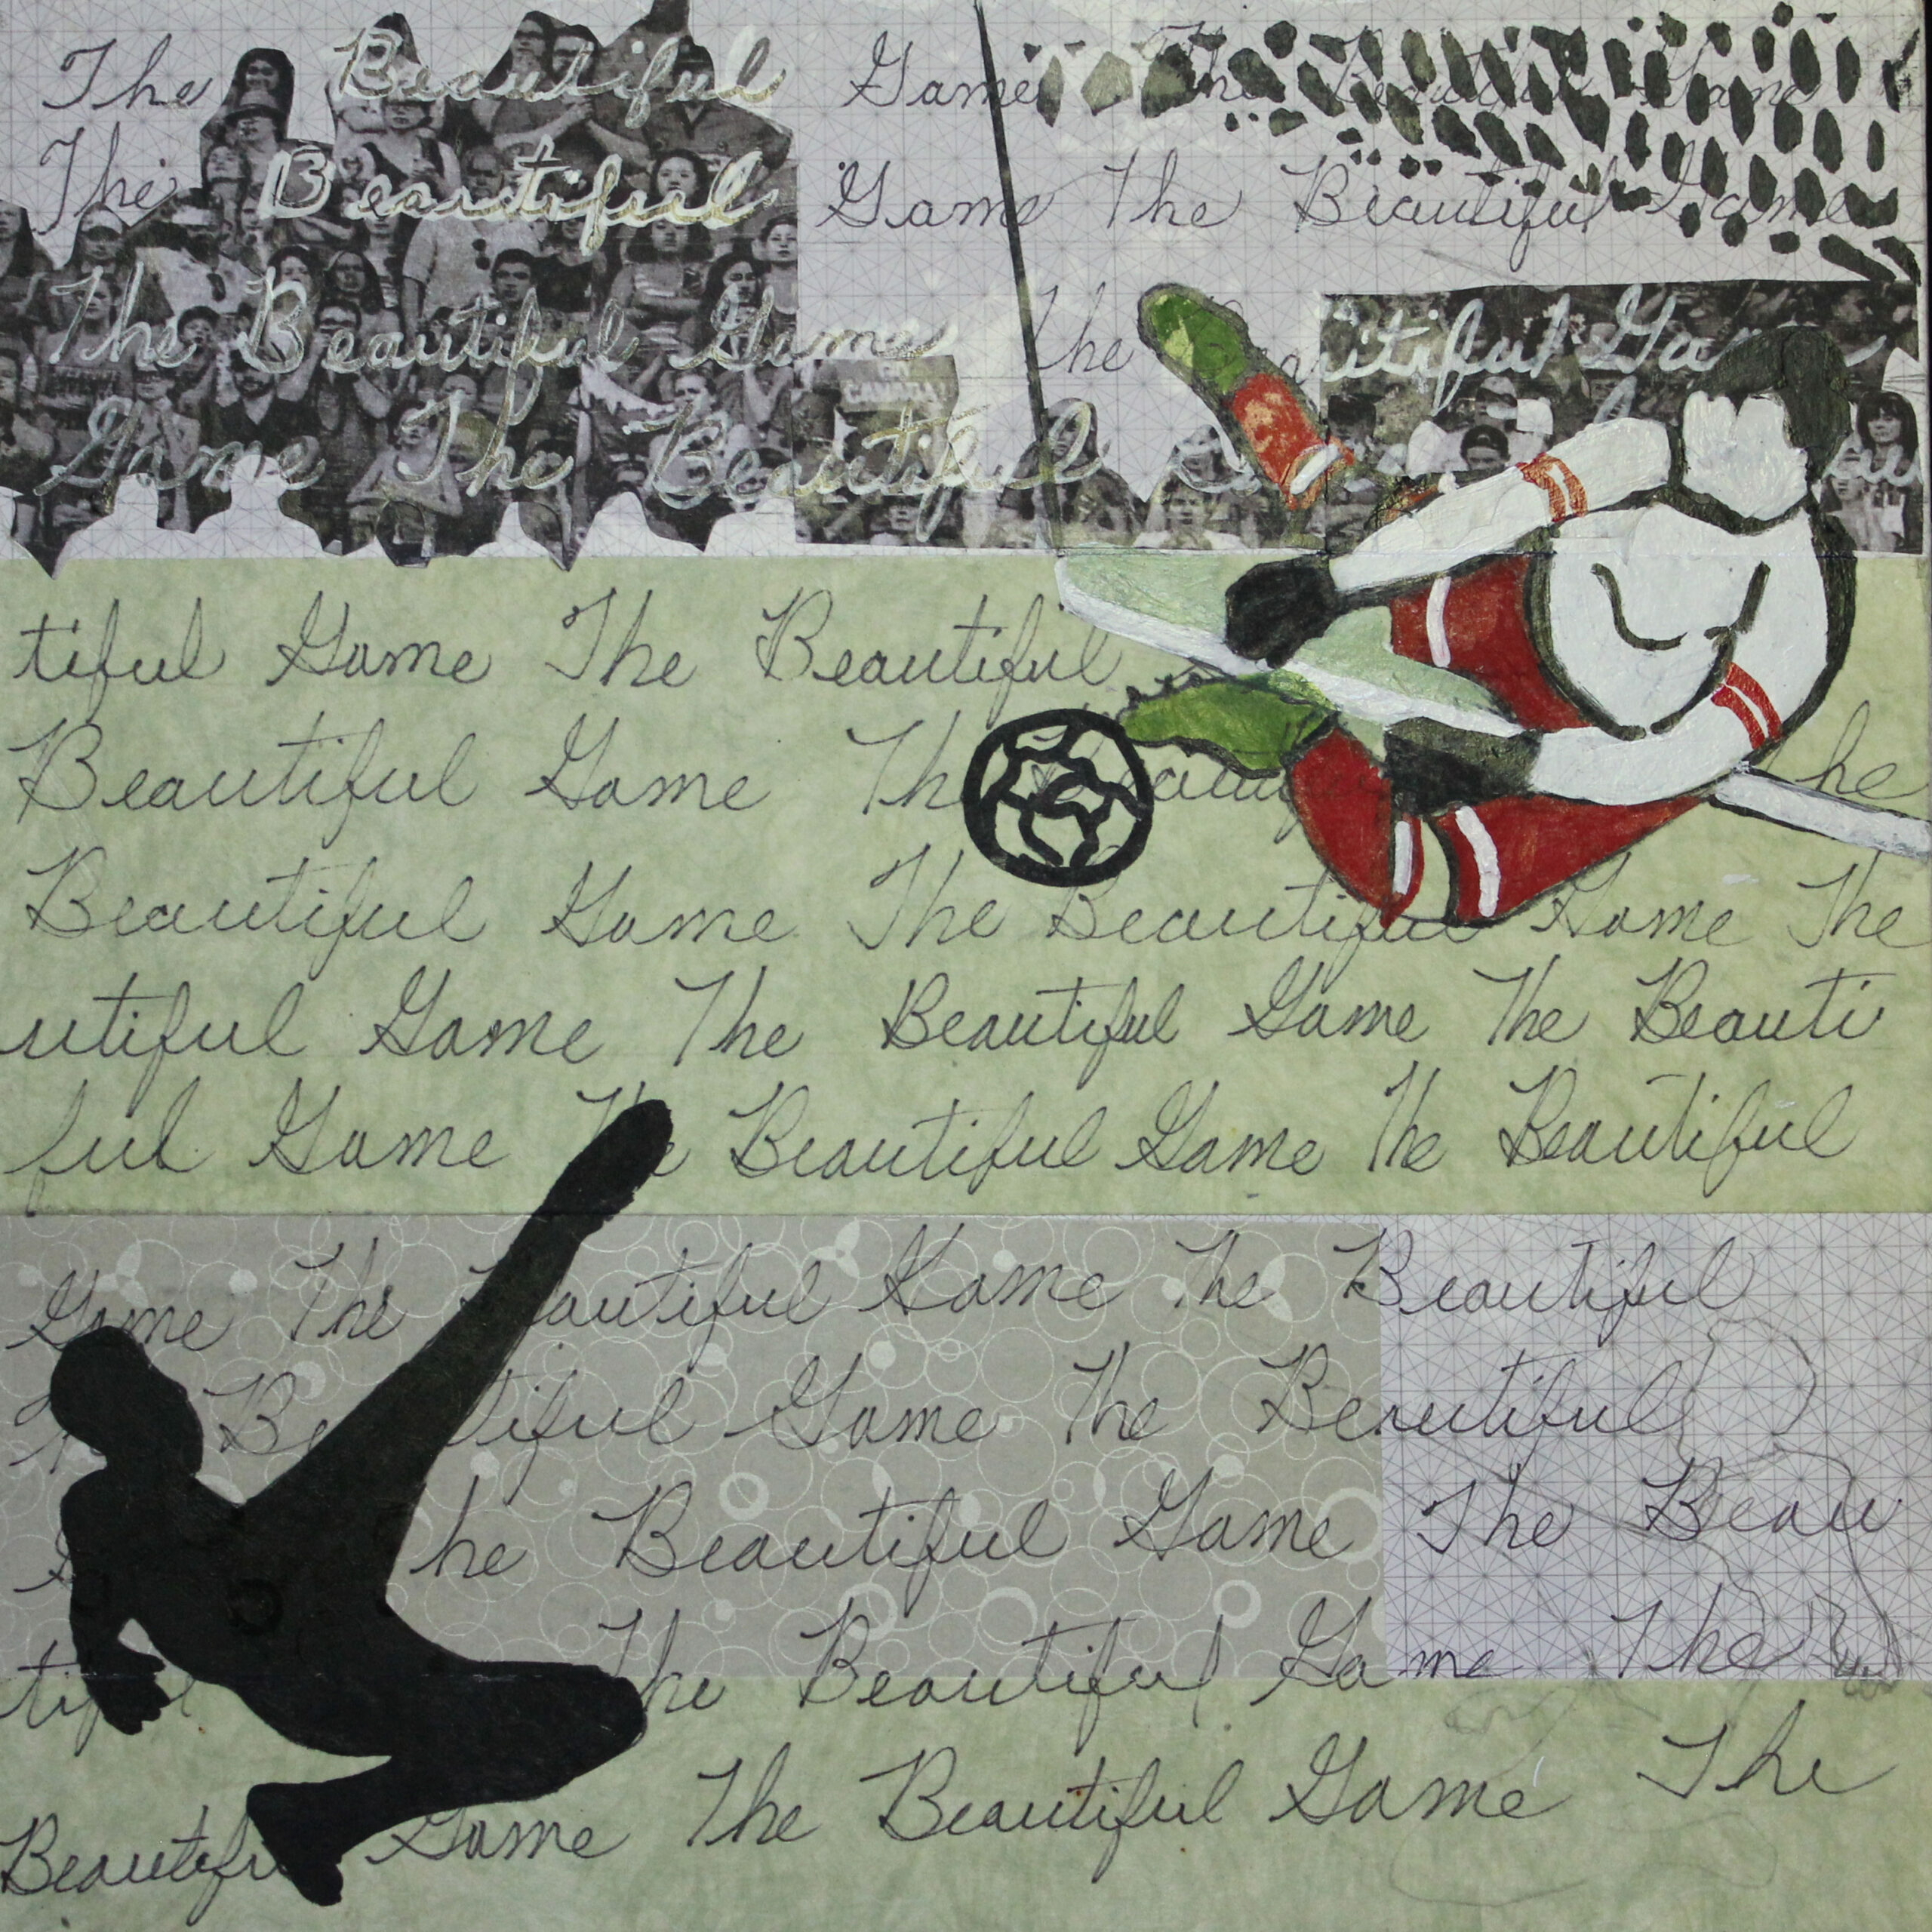 The Beautiful Game The Beautiful Game
The Beautiful Game The Beautiful Game
The Beautiful Game The utiful Ga
CANADA!
Game The Beautiful
tiful Game The Beautiful
Beautiful Game Th he
Beautiful Game The Beautiful Game The
utiful Game The Beautiful Game The Beauti
ful Game The Beautiful Game The Beautiful
Game The Beautiful Game The Beautiful
Be tiful Game The Beautiful
he Beautiful Game The Beau
tiful The Beautiful Game The
Beautiful Game The Beautiful Game The